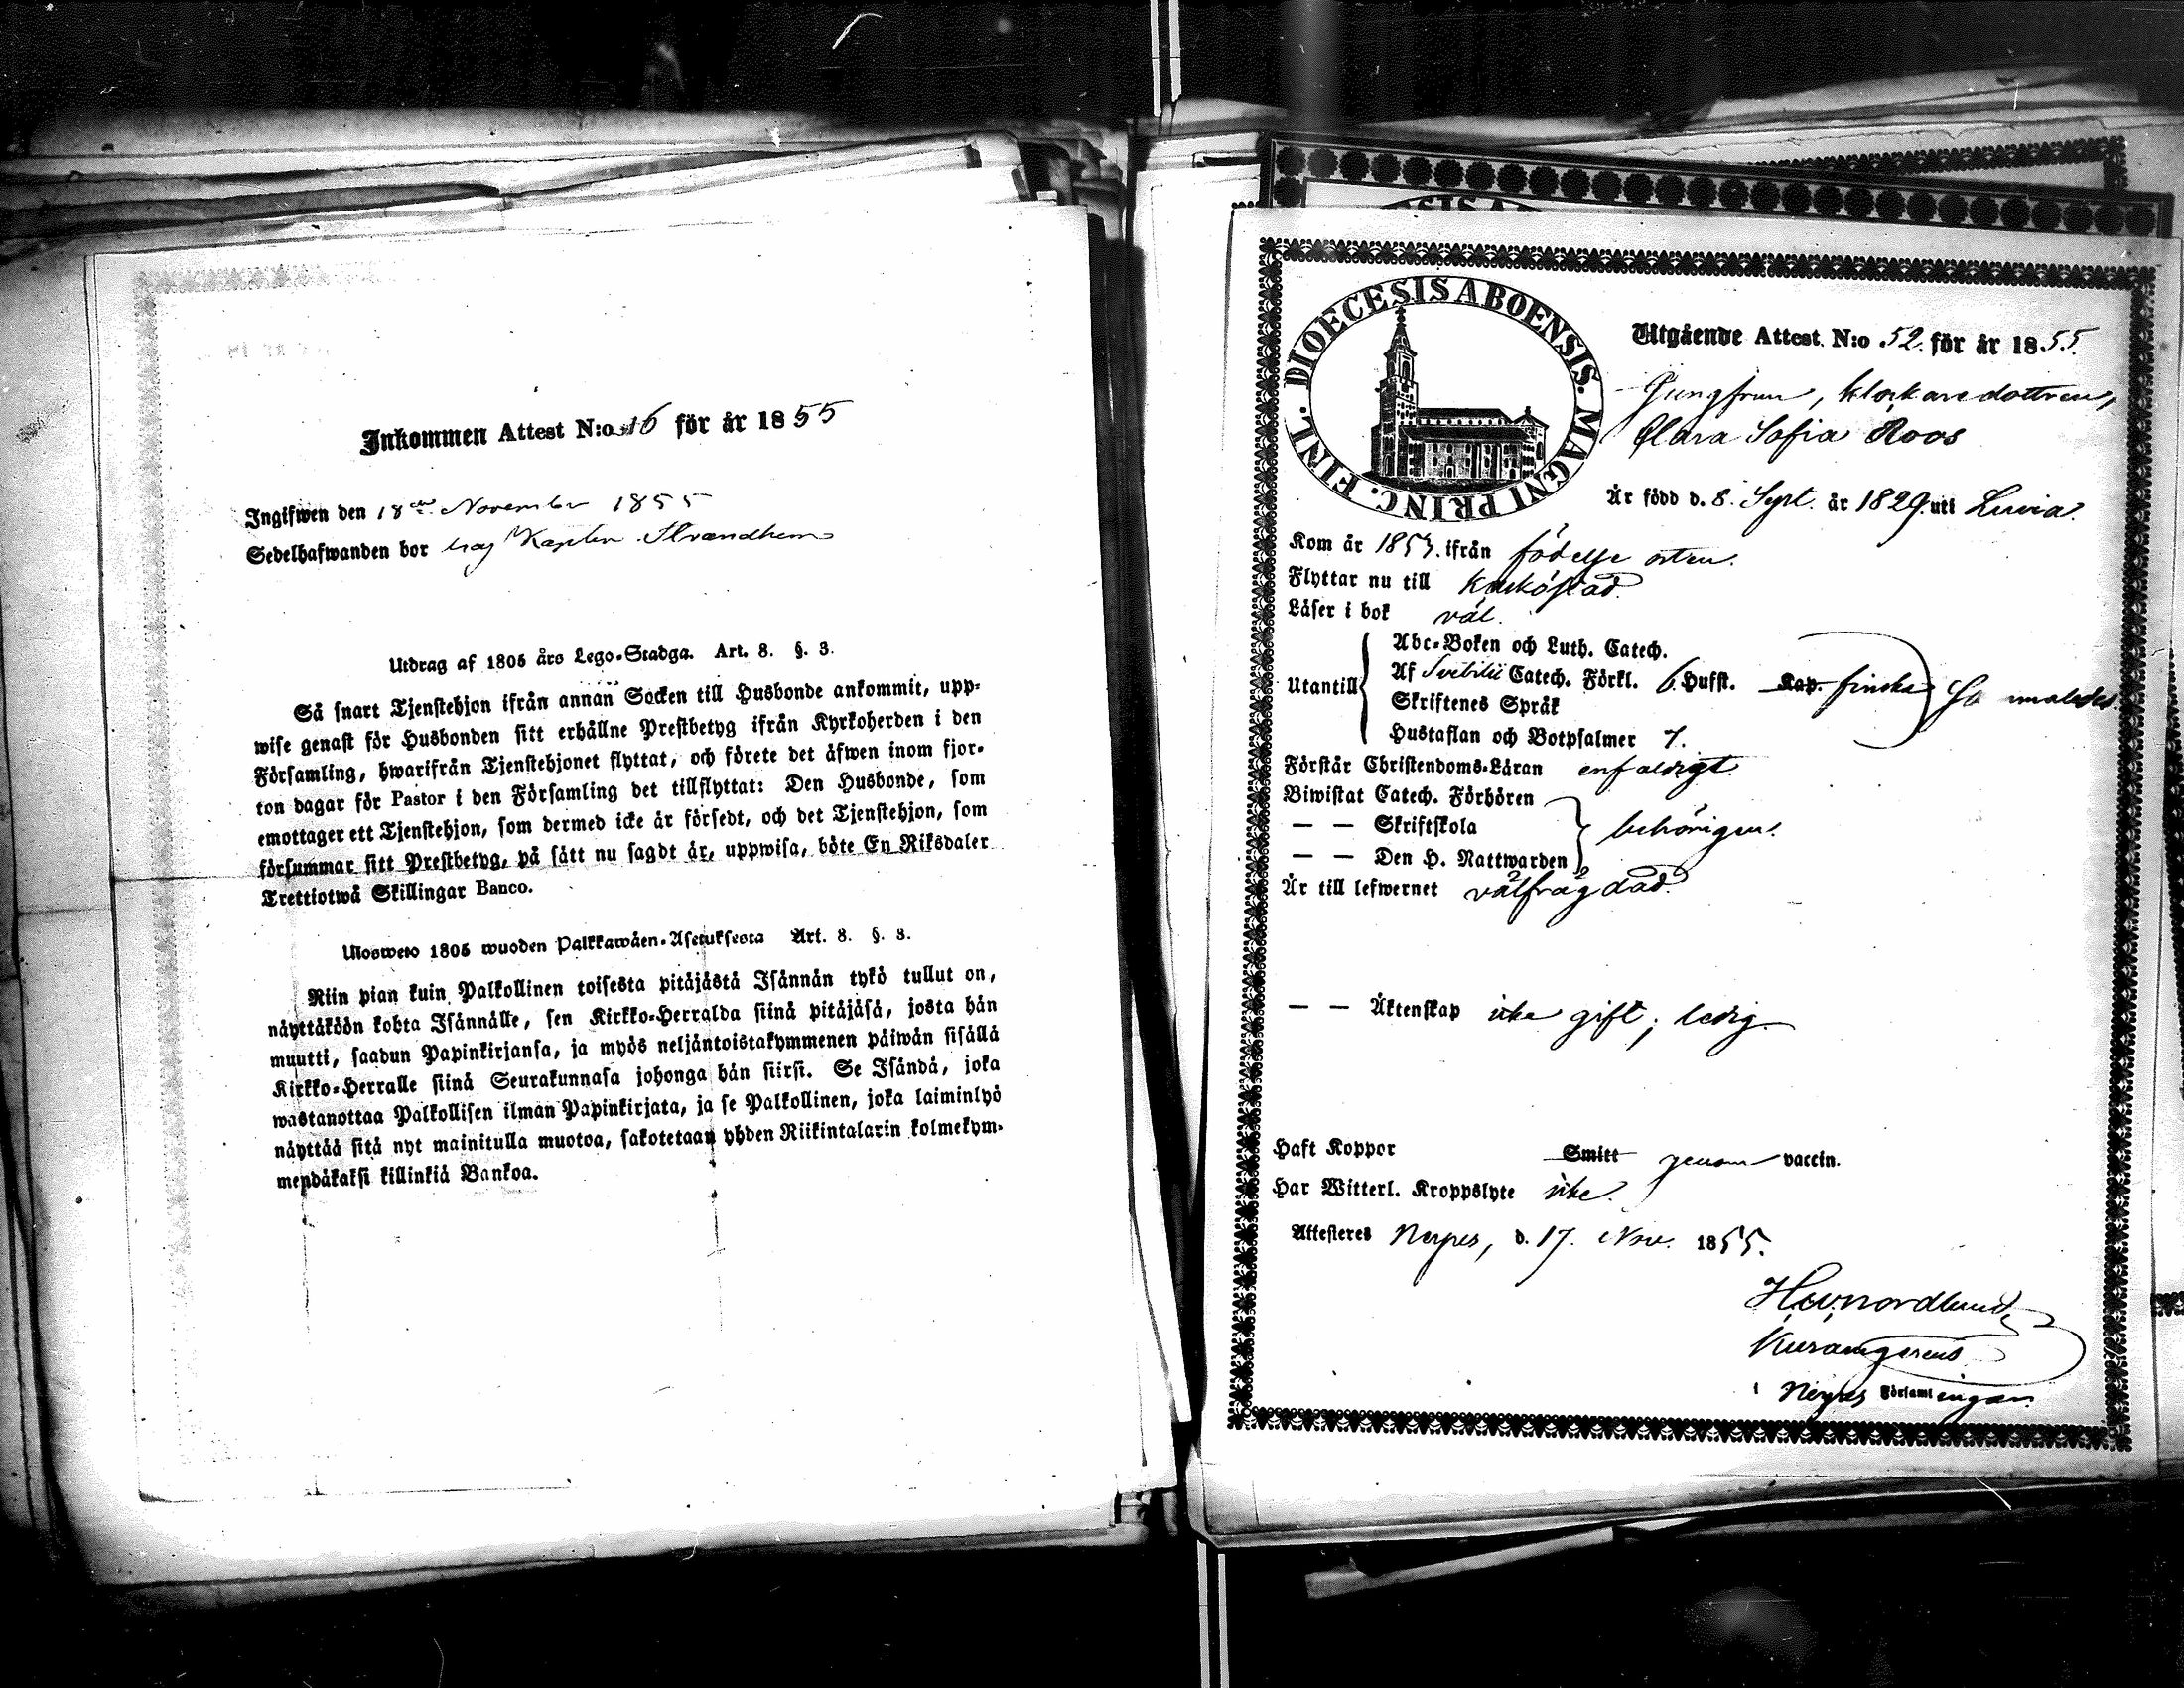 Inkommen Attest N:o 16 för år 1855
Ingifwen den 18de November 1855
Sedelhafwanden bor hos Kaplan Strandhem
Utdrag af 1805 års Lego-Stadga. Art. 8. §. 3.
Så snart Tjenstehjon ifrån annan Socken till Husbonde ankommit, upp-
wise genast för Husbonden sitt erhållne Prestbetyg ifrån Kyrkoherden i den
Församling, hwarifrån Tjenstehjonet flyttat, och förete det äfwen inom fjor-
ton dagar för Pastor i den Församling det tillflyttat: Den Husbonde, som
emottager ett Tjenstehjon, som dermed icke är försedt, och det Tjenstehjon, som
försummar sitt Prestbetyg, på sätt nu sagdt är, uppwisa, böte En Riksdaler
Trettiotwå Skillingar Banco.
Ulosweto 1805 wuoden Palkkawäen-Asetuksesta Art. 8. §. 3.
Niin pian kuin Palkollinen toisesta pitäjästä Isännän tykö tullut on,
näyttäköön kohta Isännälle, sen Kirkko-Herralda siinä pitäjäsä, josta hän
muutti, saadun Papinkirjansa, ja myös neljäntoistakymmenen päiwän sisällä
Kirkko-Herralle siinä Seurakunnasa johonga hän siirsi. Se Isändä, joka
wastanottaa Palkollisen ilman Papinkirjata, ja se Palkollinen, joka laiminlyö
näyttää sitä nyt mainitulla muotoa, sakotetaan yhden Riikintalarin kolmekym-
mendäkaksi killinkiä Bankoa.
DIOECESIS ABOENSIS. MAGNI PRINC. FINL.
Utgående Attest. N:o 52. för år 1855.
Jungfrun, klockaredottren,
Clara Sofia Roos
Är född d. 8. Sept. år 1829. uti Luvia.
Kom år 1853. ifrån födelse orten.
Flyttar nu till Kaskö stad.
Läser i bok väl.
Utantill
Abc-Boken och Luth. Catech.
Af Svebilii Catech. Förkl. 6. Hufst. Kap. finska
Skriftenes Språk
Hustaflan och Botpsalmer 7.
Förstår Christendoms-Läran enfaldigt.
Biwistat Catech. Förhören
— — Skriftskola behörigen.
— — Den H. Nattwarden
Är till lefwernet välfrägdad.
— — Äktenskap icke gift, ledig.
Haft Koppor Smitt genom vaccin.
Har Witterl. Kroppslyte icke.
Attesteres Nerpes, d. 17. Nov. 1855.
Nordlund
i Nerpes Församlingar.